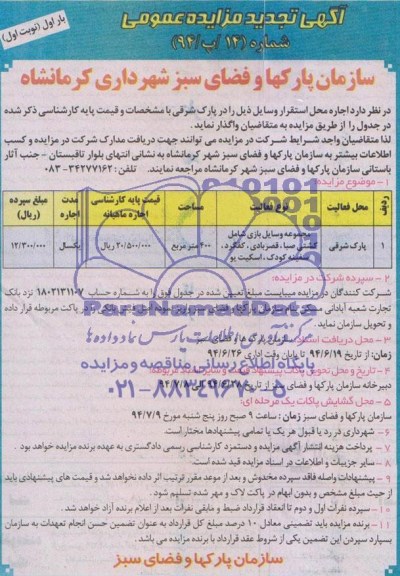 آگهی تجدید مزایده عمومی
شماره (۱۴/پ/۹۴)
بار اول (نوبت اول)
سازمان پارکها و فضای سبز شهرداری کرمانشاه
در نظر دارد اجاره محل استقرار وسایل ذیل را در پارک شرقی با مشخصات و قیمت پایه کارشناسی ذکر شده
در جدول را از طریق مزایده به متقاضیان واگذار نماید.
لذا متقاضیان واجد شرایط شرکت در مزایده می توانند جهت دریافت مدارک شرکت در مزایده و کسب
اطلاعات بیشتر به سازمان پارکها و فضای سبز شهر کرمانشاه به نشانی انتهای بلوار تاقبستان - جنب آثار
باستانی سازمان پارکها و فضای سبز شهر کرمانشاه مراجعه نمایند. تلفن: ۳۴۲۷۷۱۶۲-۰۸۳
۱- موضوع مزایده:
ردیف محل فعالیت نوع فعالیت مساحت قیمت پایه کارشناسی اجاره ماهیانه مدت اجاره مبلغ سپرده (ریال)
۱ پارک شرقی مجموعه وسایل بازی شامل کشتی صبا، قصر بادی، کفگرد، سفینه کودک، اسکیت یو ۴۰۰ متر مربع ۲۰/۵۰۰/۰۰۰ ریال یکسال ۱۲/۳۰۰/۰۰۰
۲- سپرده شرکت در مزایده:
شرکت کنندگان در مزایده میبایست مبلغ تعیین شده در جدول فوق را به شماره حساب ۱۸۰۲۱۳۱۱۰۷ نزد بانک
تجارت شعبه آبادانی مسکن
پاکت مربوطه قرار داده
و تحویل سازمان نماید.
۳- محل دریافت اسناد: سازمان پارکها و فضای سبز
زمان: از تاریخ ۹۴/۶/۱۹ تا پایان وقت اداری ۹۴/۶/۲۶
۴- تاریخ و محل تحویل پاکات پیشنهاد قیمت و سایر
دبیرخانه سازمان پارکها و فضای سبز از تاریخ ۹۴/۶/۲۸ تا ۹۴/۷/۸
۵- محل گشایش پاکات یک مرحله ای:
سازمان پارکها و فضای سبز زمان: ساعت ۹ صبح روز پنج شنبه مورخ ۹۴/۷/۹
۶- شهرداری در رد یا قبول هر یک یا تمامی پیشنهادها مختار است.
۷- پرداخت هزینه انتشار آگهی مزایده و دستمزد کارشناسی رسمی دادگستری به عهده برنده مزایده خواهد بود.
۸- سایر جزییات و اطلاعات در اسناد مزایده قید شده است.
۹- پیشنهادات واصله فاقد سپرده مخدوش و بعد از موعد مقرر ترتیب اثر داده نخواهد شد و قیمت های پیشنهادی باید
از حیث مبلغ مشخص و بدون ابهام در پاکت لاک و مهر شده تسلیم شود.
۱۰- سپرده نفرات اول و دوم تا انعقاد قرارداد ضبط و مابقی نفرات بعد از اعلام برنده آزاد خواهد شد.
۱۱- برنده مزایده باید تضمینی معادل ۱۰ درصد مبلغ کل قرارداد به عنوان تضمین حسن انجام تعهدات به سازمان
بسپارد سپردن این تضمین یکی از شروط عقد قرارداد با برنده مزایده می باشد.
سازمان پارکها و فضای سبز
ParsNamadData
مرکز فن آوری اطلاعات پارس نماد داده ها
پایگاه اطلاع رسانی مناقصه و مزایده
۰۲۱-۸۸۳۴۹۶۷۰-۵